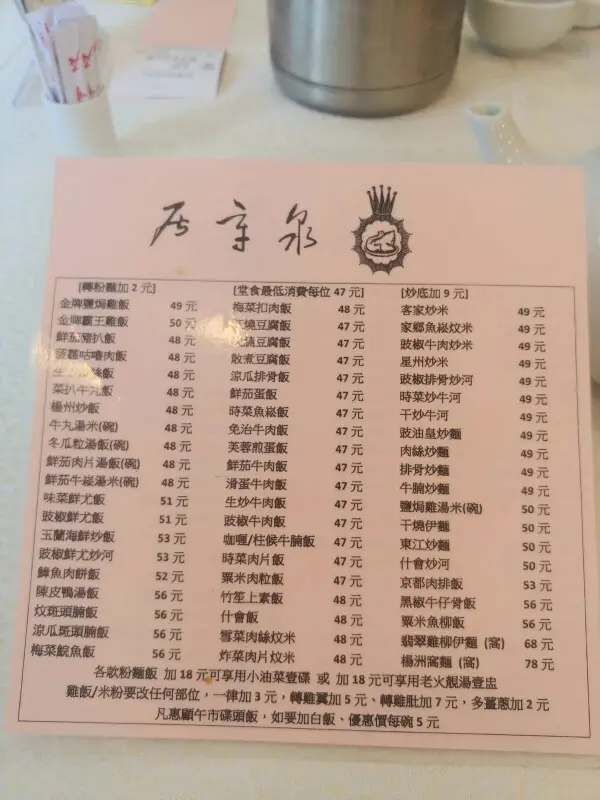 泉章居
[轉粉麵加 2 元]
金牌鹽焗雞飯 49 元
金牌霸王雞飯 50 元
鮮茄豬扒飯 48 元
菠蘿咕嚕肉飯 48 元
飯 48 元
菜扒牛丸飯 48 元
楊州炒飯 48 元
牛丸湯米(碗) 48 元
冬瓜粒湯飯(碗) 48 元
鮮茄肉片湯飯(碗) 48 元
鮮茄牛崧湯米(碗) 48 元
味菜鮮尤飯 51 元
豉椒鮮尤飯 51 元
玉蘭海鮮炒飯 53 元
豉椒鮮尤炒河 53 元
鱆魚肉餅飯 52 元
陳皮鴨湯飯 56 元
炆斑頭腩飯 56 元
涼瓜斑頭腩飯 56 元
梅菜鯇魚飯 56 元
[堂食最低消費每位 47 元]
梅菜扣肉飯 48 元
燒豆腐飯 47 元
豆腐飯 47 元
散煮豆腐飯 47 元
涼瓜排骨飯 47 元
鮮茄蛋飯 47 元
時菜魚崧飯 47 元
免治牛肉飯 47 元
芙蓉煎蛋飯 47 元
鮮茄牛肉飯 47 元
滑蛋牛肉飯 47 元
生炒牛肉飯 47 元
豉椒牛肉飯 47 元
咖喱/柱候牛腩飯 47 元
時菜肉片飯 47 元
粟米肉粒飯 47 元
竹笙上素飯 48 元
什會飯 48 元
雪菜肉絲炆米 48 元
炸菜肉片炆米 48 元
[炒底加 9 元]
客家炒米 49 元
家鄉魚崧炆米 49 元
豉椒牛肉炒米 49 元
星州炒米 49 元
豉椒排骨炒河 49 元
時菜炒牛河 49 元
干炒牛河 49 元
豉油皇炒麵 49 元
肉絲炒麵 49 元
排骨炒麵 49 元
牛腩炒麵 49 元
鹽焗雞湯米(碗) 50 元
干燒伊麵 50 元
東江炒麵 50 元
什會炒河 50 元
京都肉排飯 53 元
黑椒牛仔骨飯 56 元
粟米魚柳飯 56 元
翡翠雞柳伊麵 (窩) 68 元
楊洲窩麵 (窩) 78 元
各款粉麵飯 加 18 元可享用小油菜壹碟 或 加 18 元可享用老火靚湯壹盅
雞飯/米粉要改任何部位，一律加 3 元，轉雞翼加 5 元、轉雞肶加 7 元，多薑蔥加 2 元
凡惠顧午市碟頭飯，如要加白飯、優惠價每碗 5 元